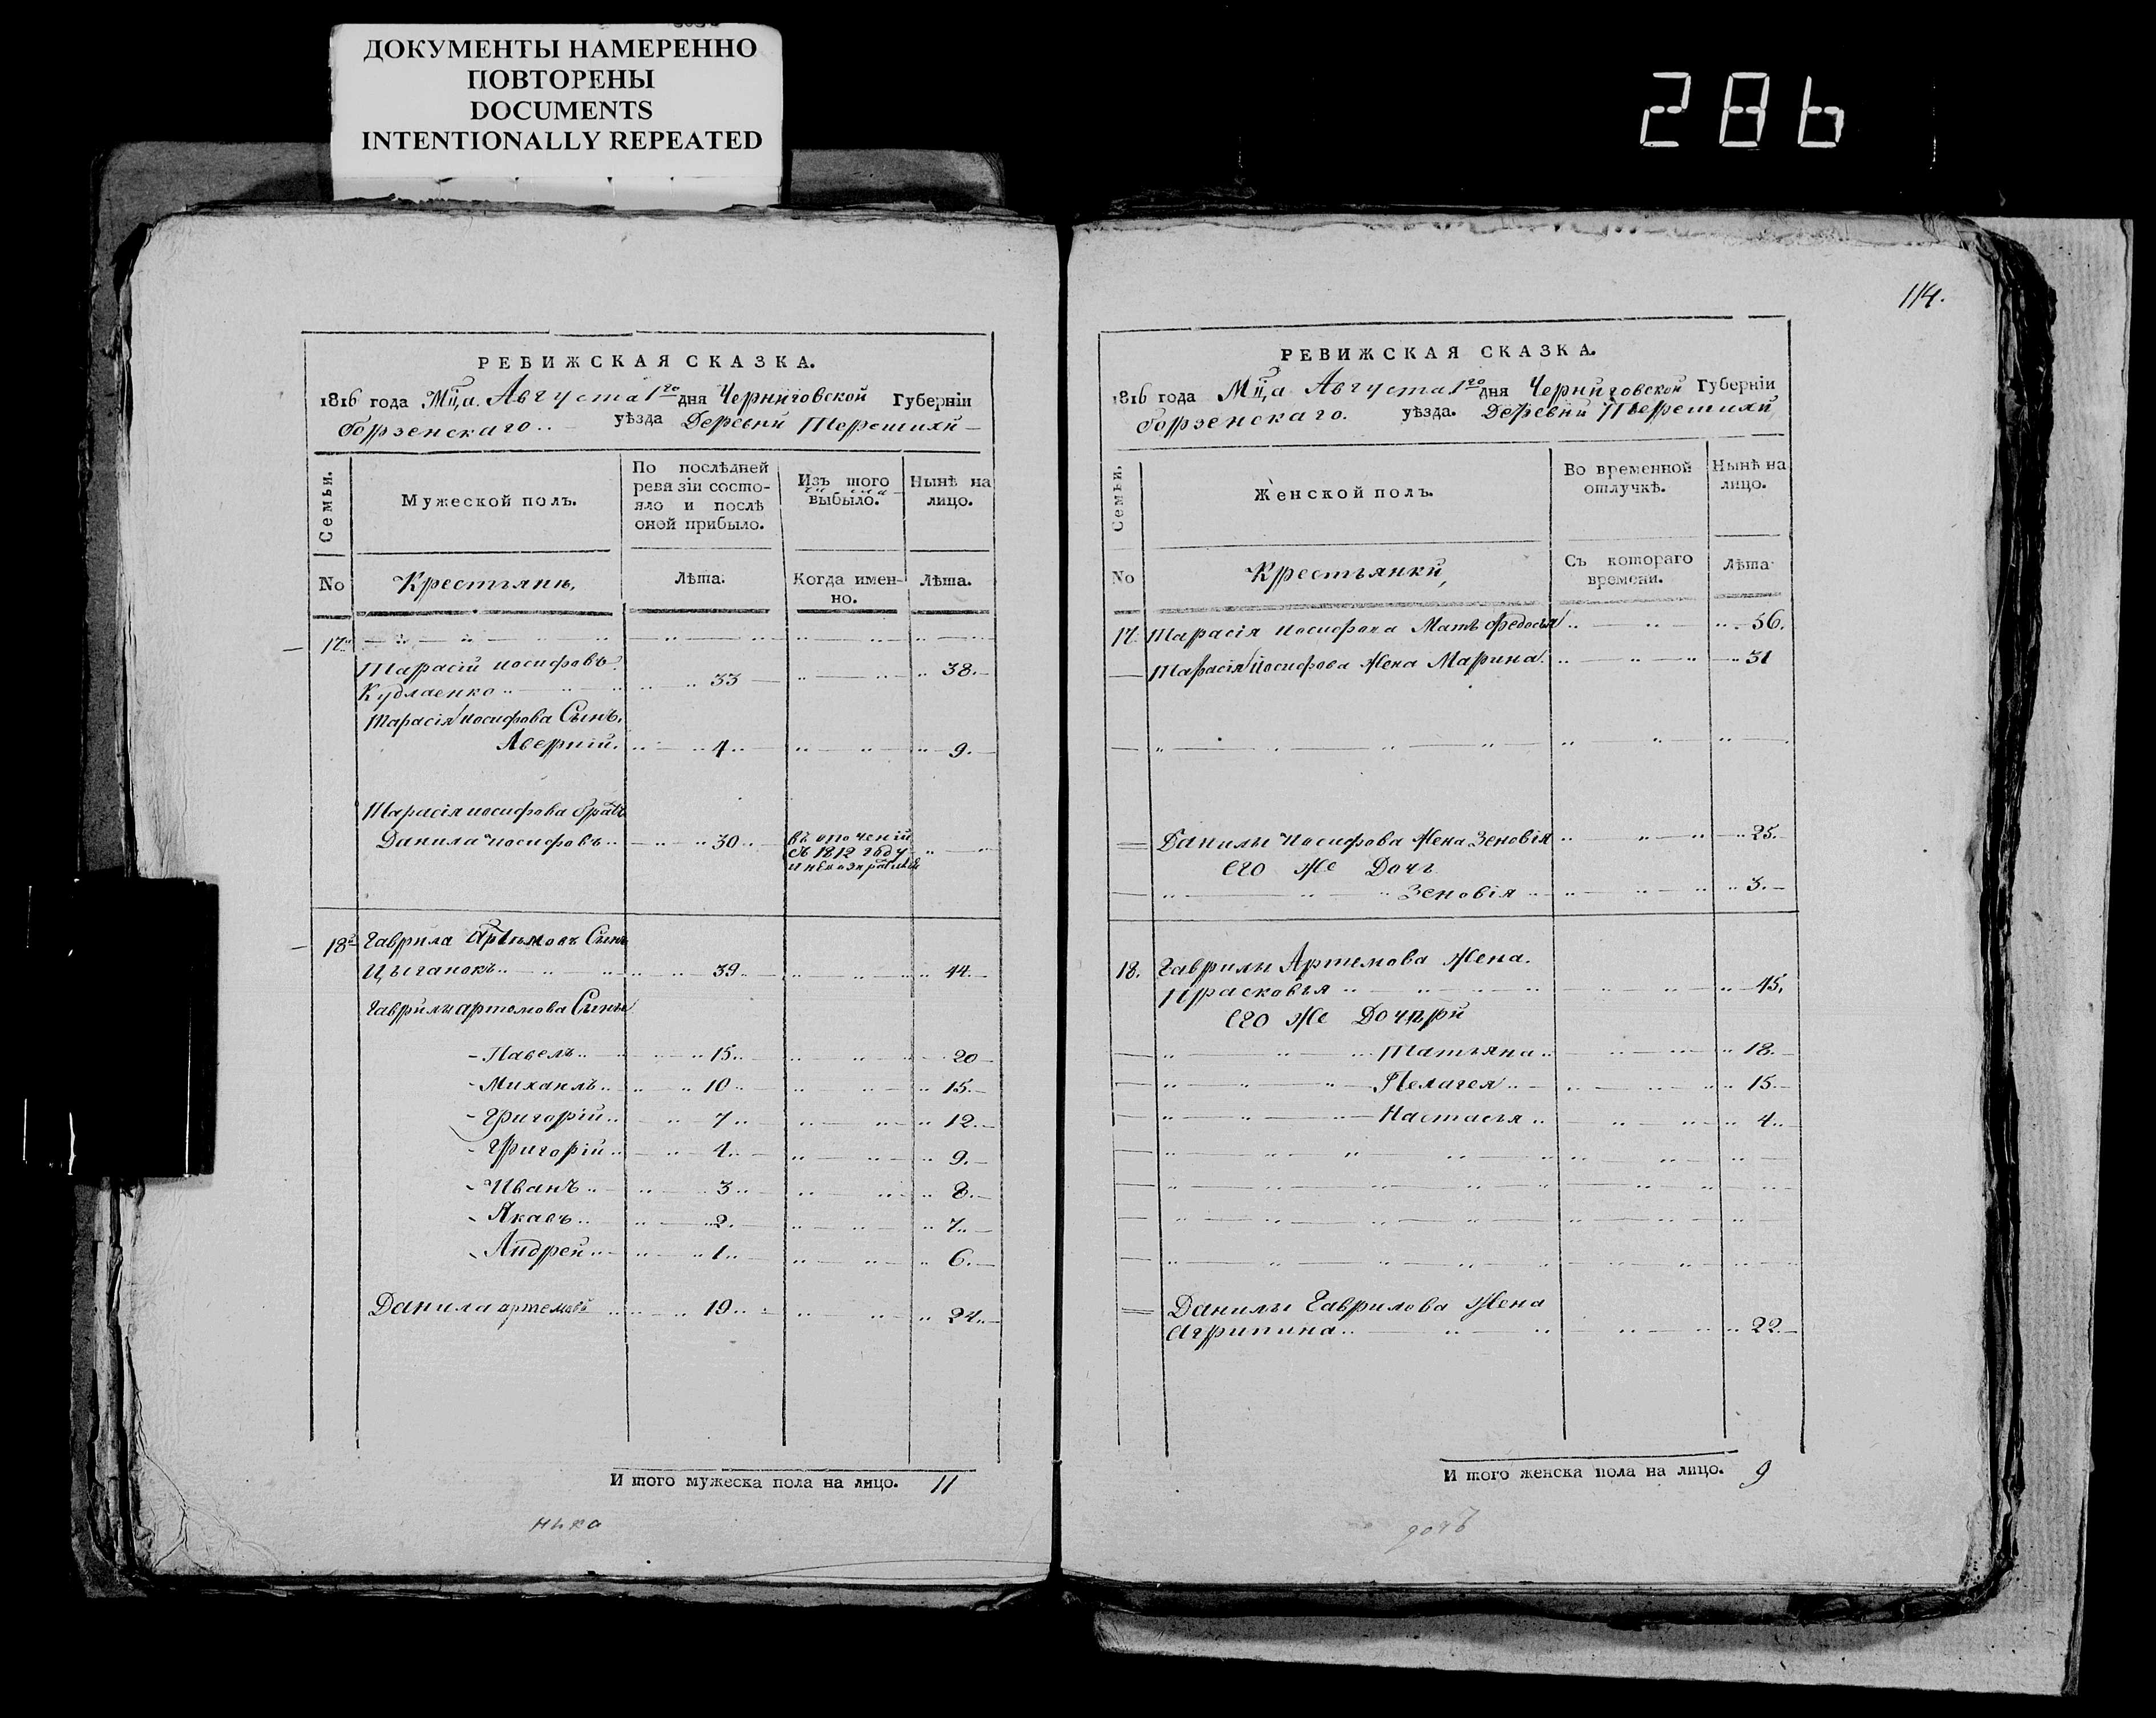 ДОКУМЕНТЫ НАМЕРЕННО
ПОВТОРЕНЫ
DOCUMENTS
INTENTIONALLY REPEATED
286
РЕВИЖСКАЯ СКАЗКА.
1816 года Мц̃а Августа 1го дня Черниговской Губерніи
борзенскаго уѣзда Деревни Терешихи
Семьи.
Мужеской полъ.
По послѣдней
ревизіи состо-
яло и послѣ
оной прибыло.
Изъ того
выбыло.
Нынѣ на
лицо.
No
Крестьянѣ,
Лѣта.
Когда имен-
но.
Лѣта.
17.
Тарасій иосифовъ
Кудлаенко 33 38.
Тарасія иосифова Сынъ,
Аверкій. 4 9.
Тарасія иосифова братъ
Данила иосифовъ 30
съ 1812 году
18 Гаврила Артемовъ Сынъ
Цыганокъ 39 44.
Гаврилы артемова Сыны
Павелъ 15 20
Михаилъ 10 15.
Григорій 7 12.
Григорій 4 9.
Иванъ 3 8.
Яковъ 2. 7.
Андрей 1 6.
Данила артемовъ 19 24.
И того мужеска пола на лицо. 11
114.
РЕВИЖСКАЯ СКАЗКА.
1816 года Мц̃а Августа 1го дня Черниговской Губерніи
борзенскаго. уѣзда. Деревни Терешихи
Семьи.
Женской полъ.
Во временной
отлучкѣ.
Нынѣ на
лицо.
No
Крестьянки,
Съ котораго
времени.
Лѣта
17. Тарасія иосифова Мать Федосья 56.
Тарасія иосифова Жена Марина 31
Данилы иосифова Жена Зеновія 25.
его же Дочь
Зеновія 3.
18. Гаврилы Артемова Жена.
Прасковья 45.
его же Дочѣри
Татьяна 18.
Пелагея 15.
Настасья 4.
Данилы Гаврилова Жена
Агрипина 22.
И того женска пола на лицо. 9
дочь